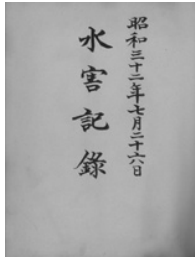 昭和三十二年七月二十六日
水害記録